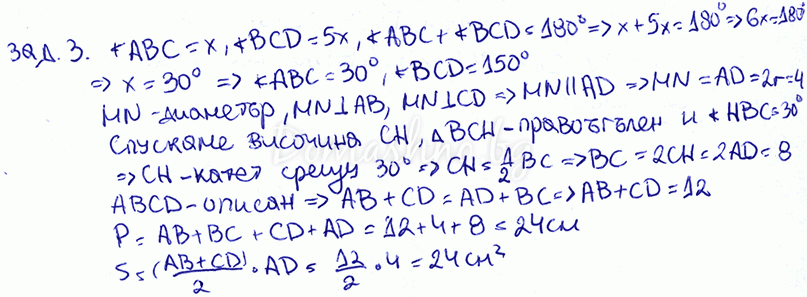 Зад. 3. ∢ABC = x, ∢BCD = 5x, ∢ABC + ∢BCD = 180° => x + 5x = 180° => 6x = 180°
=> x = 30° => ∢ABC = 30°, ∢BCD = 150°
MN - диаметър, MN ⊥ AB, MN ⊥ CD => MN || AD => MN = AD = 2r = 4
Спускаме височина CH, △BCH - правоъгълен и ∢HBC = 30°
=> CH - катет срещу 30° => CH = 1/2 BC => BC = 2CH = 2AD = 8
ABCD - описан => AB + CD = AD + BC => AB + CD = 12
P = AB + BC + CD + AD = 12 + 4 + 8 = 24 см
S = (AB + CD)/2 . AD = 12/2 . 4 = 24 см²